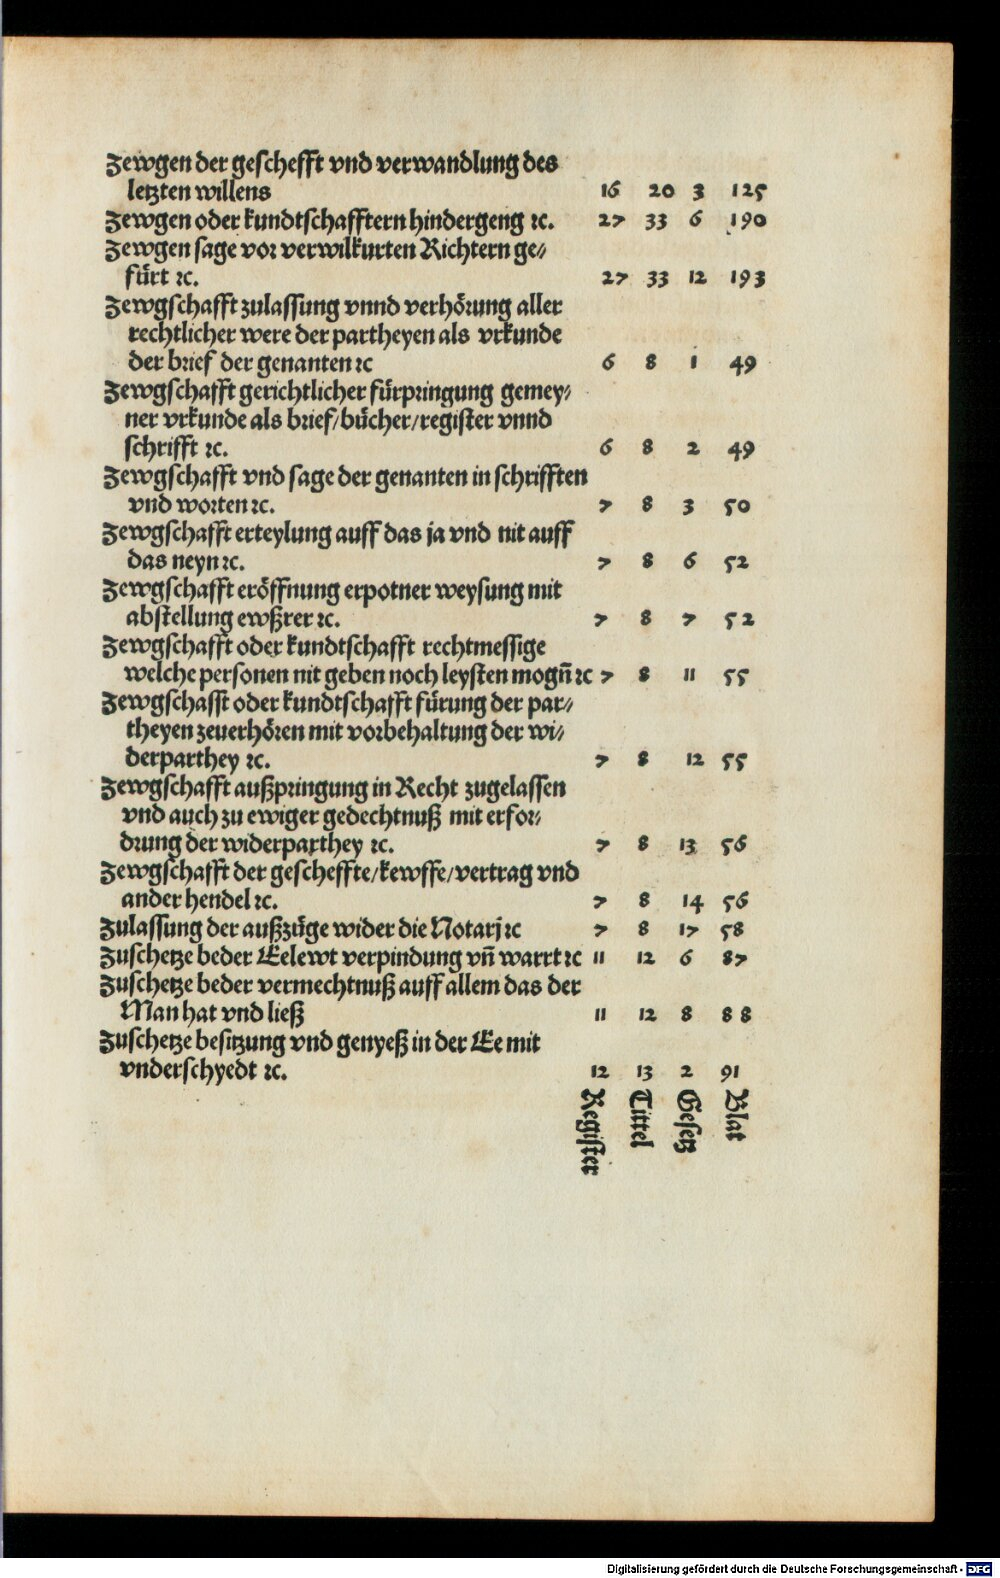 Zewgen der geschefft vnd verwandlung des
letzten willens 16 20 3 125
Zewgen oder kundtschafftern hindergeng ⁊c. 27 33 6 190
Zewgen sage vor verwilkurten Richtern ge⸗
fürt ⁊c. 27 33 12 193
Zewgschafft zulassung vnnd verhörung aller
rechtlicher were der partheyen als vrkunde
der brief der genanten ⁊c 6 8 1 49
Zewgschafft gerichtlicher fürpringung gemey⸗
ner vrkunde als brief/bücher/register vnnd
schrifft ⁊c. 6 8 2 49
Zewgschafft vnd sage der genanten in schrifften
vnd worten ⁊c. 7 8 3 50
Zewgschafft erteylung auff das ja vnd nit auff
das neyn ⁊c. 7 8 6 52
Zewgschafft eröffnung erpotner weysung mit
abstellung ewßrer ⁊c. 7 8 7 52
Zewgschafft oder kundtschafft rechtmessige
welche personen nit geben noch leysten mogn̄ ⁊c 7 8 11 55
Zewgschafft oder kundtschafft fürung der par⸗
theyen zeuerhören mit vorbehaltung der wi⸗
derparthey ⁊c. 7 8 12 55
Zewgschafft außpringung in Recht zugelassen
vnd auch zu ewiger gedechtnuß mit erfor⸗
drung der widerparthey ⁊c. 7 8 13 56
Zewgschafft der gescheffte/kewffe/vertrag vnd
ander hendel ⁊c. 7 8 14 56
Zulassung der außzüge wider die Notarj ⁊c 7 8 17 58
Zuschetze beder Eelewt verpindung vn̄ warrt ⁊c 11 12 6 87
Zuschetze beder vermechtnuß auff allem das der
Man hat vnd ließ 11 12 8 88
Zuschetze besitzung vnd genyeß in der Ee mit
vnderschyedt ⁊c. 12 13 2 91
Register Tittel Gesetz Blat
Digitalisierung gefördert durch die Deutsche Forschungsgemeinschaft - DFG